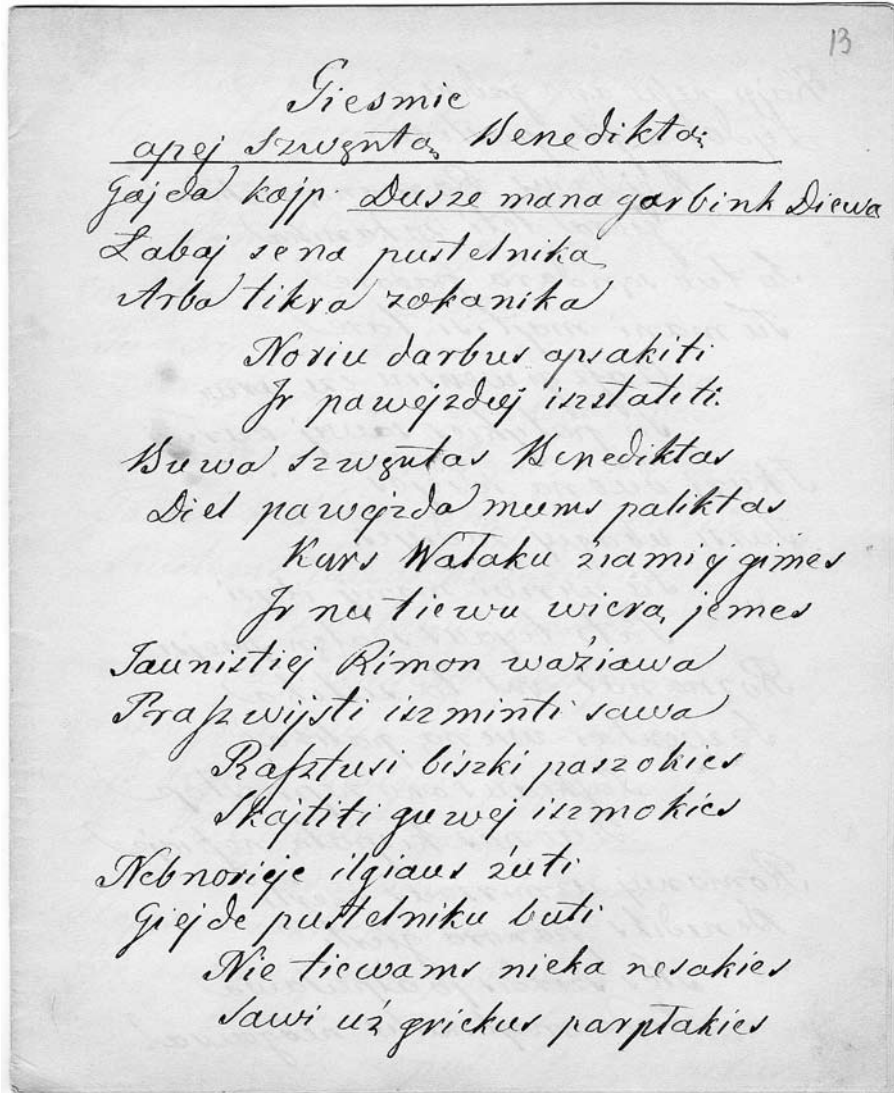 13
Giesmie
apej Szwęnta Benedikta
Gajda kajp. Dusze mana garbink Diewa
Labaj sena pustelnika
Arba tikra zokanika
Noriu darbus apsakiti
Ir pawejzdiej iszstatiti.
Buwa Szwęntas Benediktas
Diel pawejzda mums paliktas
Kurs Wałaku ziamiej gimes
Ir nu tiewu wiera jemes
Jaunistiej Rimon ważiawa
Praszwijsti iszminti sawa
Rasztusi biszki paszokies
Skajtiti guwej iszmokies
Nebnorieje ilgiaus żuti
Giejde pustelniku buti
Nie tiewams nieka nesakies
Sawi uż griekus parpłakies